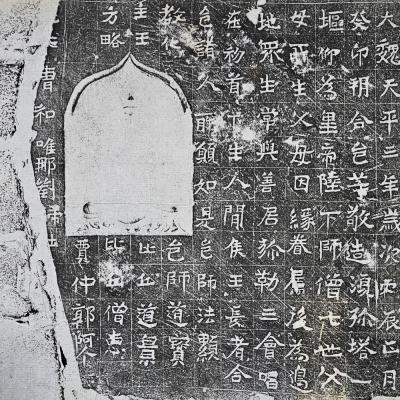 大魏天平三年歲次丙辰正月
癸卯朔合邑等敬造須弥塔一
堰仰為皇帝陛下師僧七世父
母所生父母因緣眷属後為邊
地眾生常與善居弥勒三會唱
在初首下生人間侯王長者合
邑諸人所願如是邑師法顯
教化
邑師道寶
主王
比丘道景
方略
比丘僧志
賈仲郭阿
曹和唯那劉